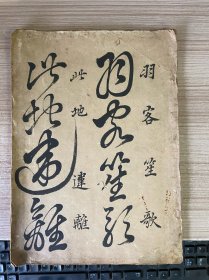 羽客笙歌
羽客笙歌
此地違離
此地違離